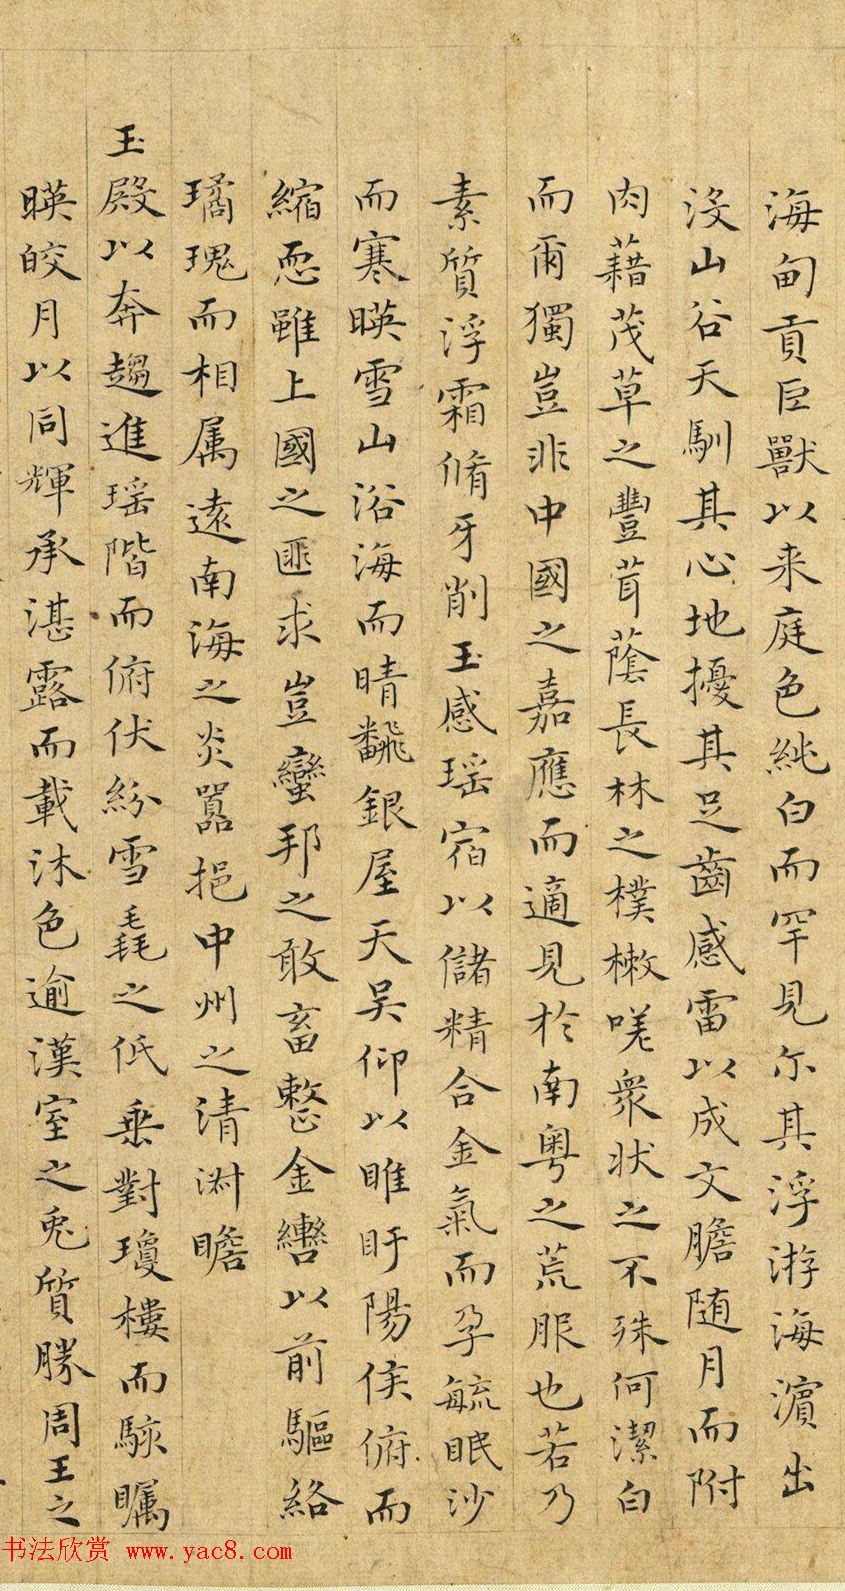 海甸貢巨獸以来庭色純白而罕見尔其浮游海濵出
没山谷天馴其心地擾其足齒感雷以成文膽随月而附
肉藉茂草之豐茸蔭長林之樸樕嗟衆状之不殊何潔白
而爾獨豈非中國之嘉應而適見於南粤之荒服也若乃
素質浮霜脩牙削玉感瑶宿以儲精合金氣而孕毓眠沙
而寒暎雪山浴海而晴飜銀屋天吴仰以睢盱陽侯俯而
縮恧雖上國之匪求豈蠻邦之敢畜整金轡以前驅絡
璚瑰而相属逺南海之炎嚣挹中州之清淑瞻
玉殿以奔趨進瑶階而俯伏紛雪毳之低垂對瓊樓而駭矚
暎皎月以同輝承湛露而載沐色逾漢室之兎質勝周王之
书法欣赏 www.yac8.com